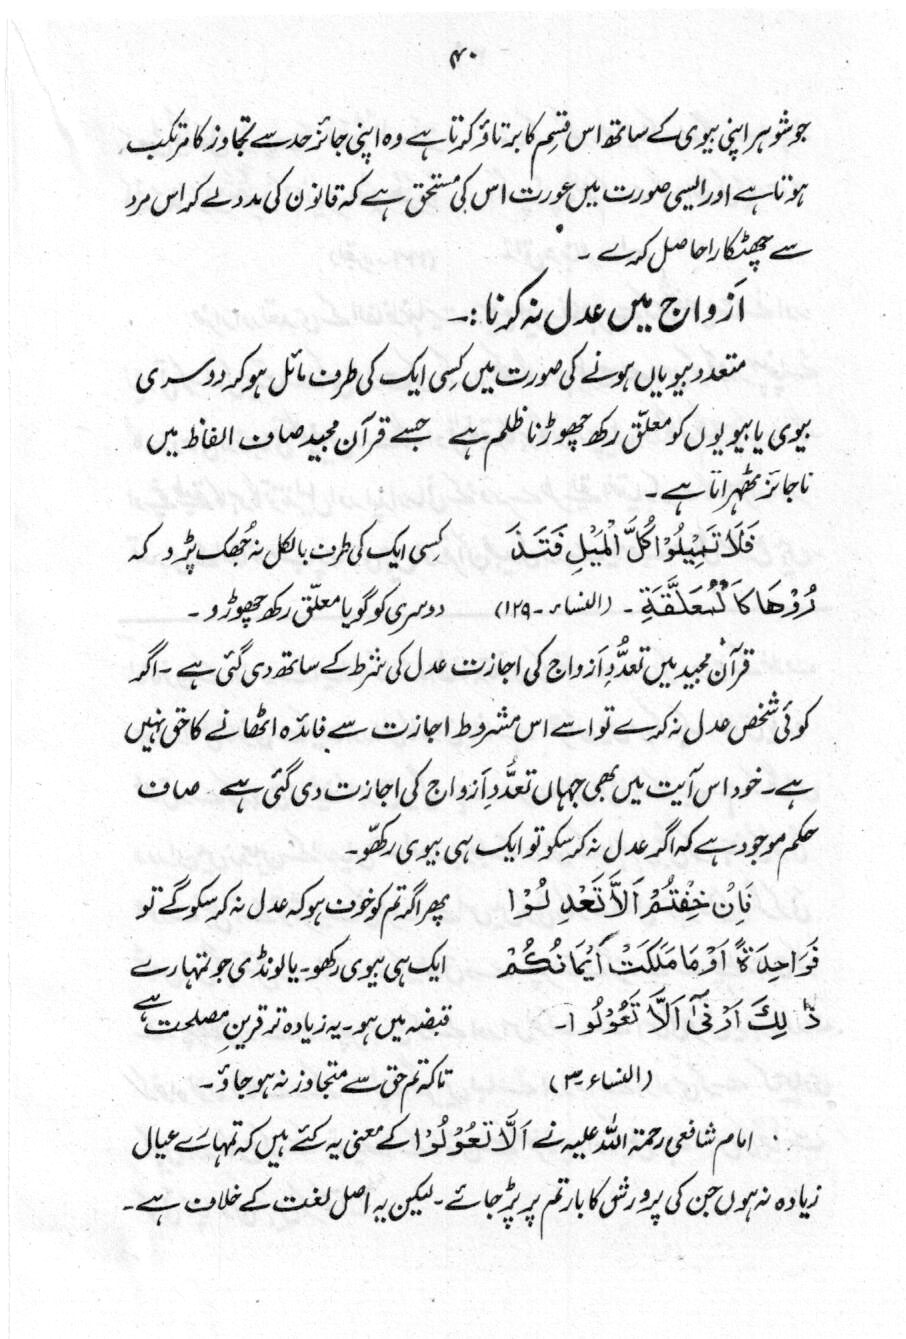 ۴۰
جو شوہر اپنی بیوی کے ساتھ اس قسم کا برتاؤ کرتا ہے وہ اپنی جائز حد سے تجاوز کا مرتکب
ہوتا ہے اور ایسی صورت میں عورت اس کی مستحق ہے کہ قانون کی مدد لے کر اس مرد
سے چھٹکارا حاصل کرے ۔
اَزواج میں عدل نہ کرنا :۔
متعدد بیویاں ہونے کی صورت میں کسِی ایک کی طرف مائل ہو کر دوسری
بیوی یا بیویوں کو معلّق رکھ چھوڑنا ظلم ہے جسے قرآن مجید صاف الفاظ میں
ناجائز ٹھہراتا ہے ۔
فَلَا تَمِيْلُوْا كُلَّ الْمَيْلِ فَتَذَ کسِی ایک کی طرف بالکل نہ جُھک پڑو کہ
رُوْهَا كَالْمُعَلَّقَةِ ۔ (النساء ۔ ۱۲۹) دوسری کو گویا معلّق رکھ چھوڑو ۔
قرآن مجید میں تعدُّدِ اَزواج کی اجازت عدل کی شرط کے ساتھ دی گئی ہے ۔ اگر
کوئی شخص عدل نہ کرے تو اسے اس مشروط اجازت سے فائدہ اٹھانے کا حق نہیں
ہے ۔ خود اس آیت میں بھی جہاں تعدُّدِ اَزواج کی اجازت دی گئی ہے صاف
حکم موجود ہے کہ اگر عدل نہ کر سکو تو ایک ہی بیوی رکھّو ۔
فَاِنْ خِفْتُمْ اَلَّا تَعْدِلُوْا پھر اگر تم کو خوف ہو کہ عدل نہ کر سکو گے تو
فَوَاحِدَةً اَوْ مَا مَلَكَتْ اَيْمَانُكُمْ ایک ہی بیوی رکھو ۔ یا لونڈی جو تمہارے
ذٰلِكَ اَدْنٰٓى اَلَّا تَعُوْلُوْا ۔ قبضہ میں ہو ۔ یہ زیادہ تر قرینِ مصلحت ہے
(النساء ۔ ۳) تاکہ تم حق سے متجاوز نہ ہو جاؤ ۔
امام شافعی رحمۃ اللہ علیہ نے اَلَّا تَعُوْلُوْا کے معنی یہ کئے ہیں کہ تمہارے عیال
زیادہ نہ ہوں جن کی پرورش کا بار تم پر پڑ جائے ۔ لیکن یہ اصل لغت کے خلاف ہے ۔